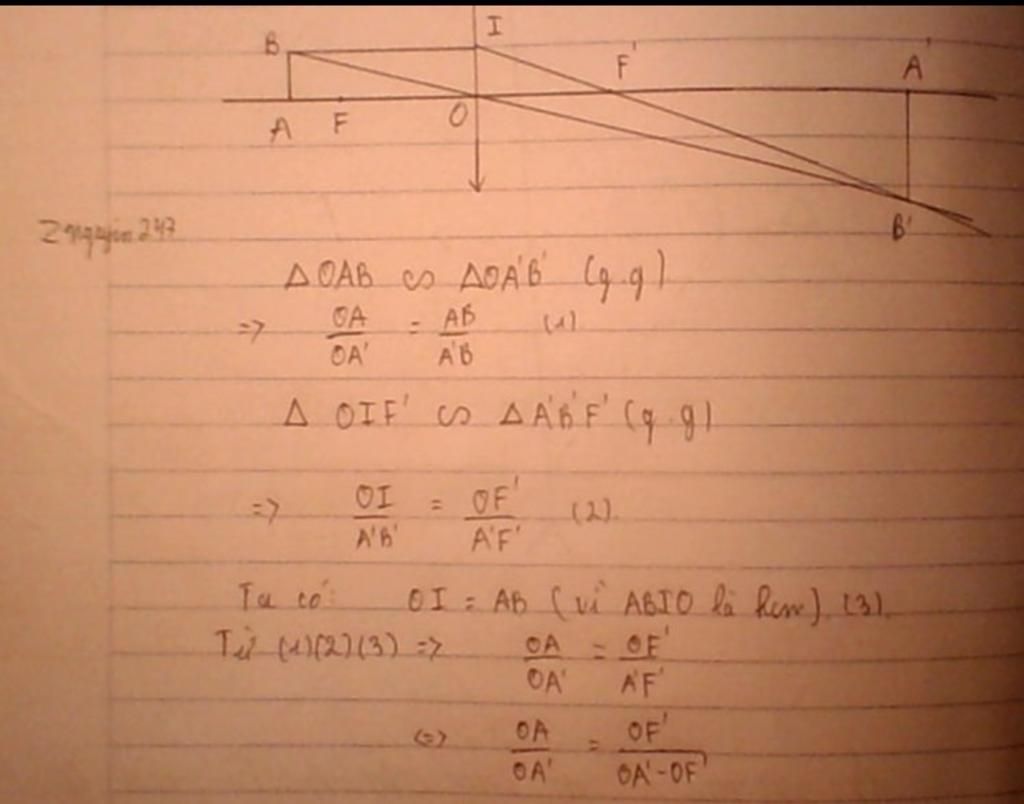 I
B
F'
A'
A
F
O
B'
ΔOAB ∽ ΔOA'B' (g.g)
=> OA/OA' = AB/A'B (1)
Δ OIF' ∽ ΔA'B'F' (g.g)
=> OI/A'B' = OF'/A'F' (2).
Ta có: OI = AB (vì ABIO là hcn). (3).
Từ (1)(2)(3) => OA/OA' = OF'/A'F'
<=> OA/OA' = OF'/OA'-OF'